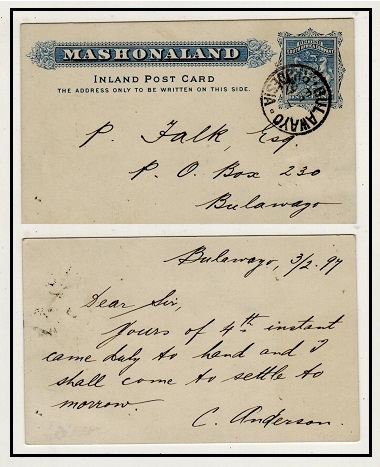 MASHONALAND
INLAND POST CARD
THE ADDRESS ONLY TO BE WRITTEN ON THIS SIDE.
BULAWAYO
P. Falk, Esq.
P. O. Box 230
Bulawayo
Bulawayo, 3/2. 97
Dear Sir,
Yours of 4th instant
came duly to hand and I
shall come to settle to
morrow.
C. Anderson.